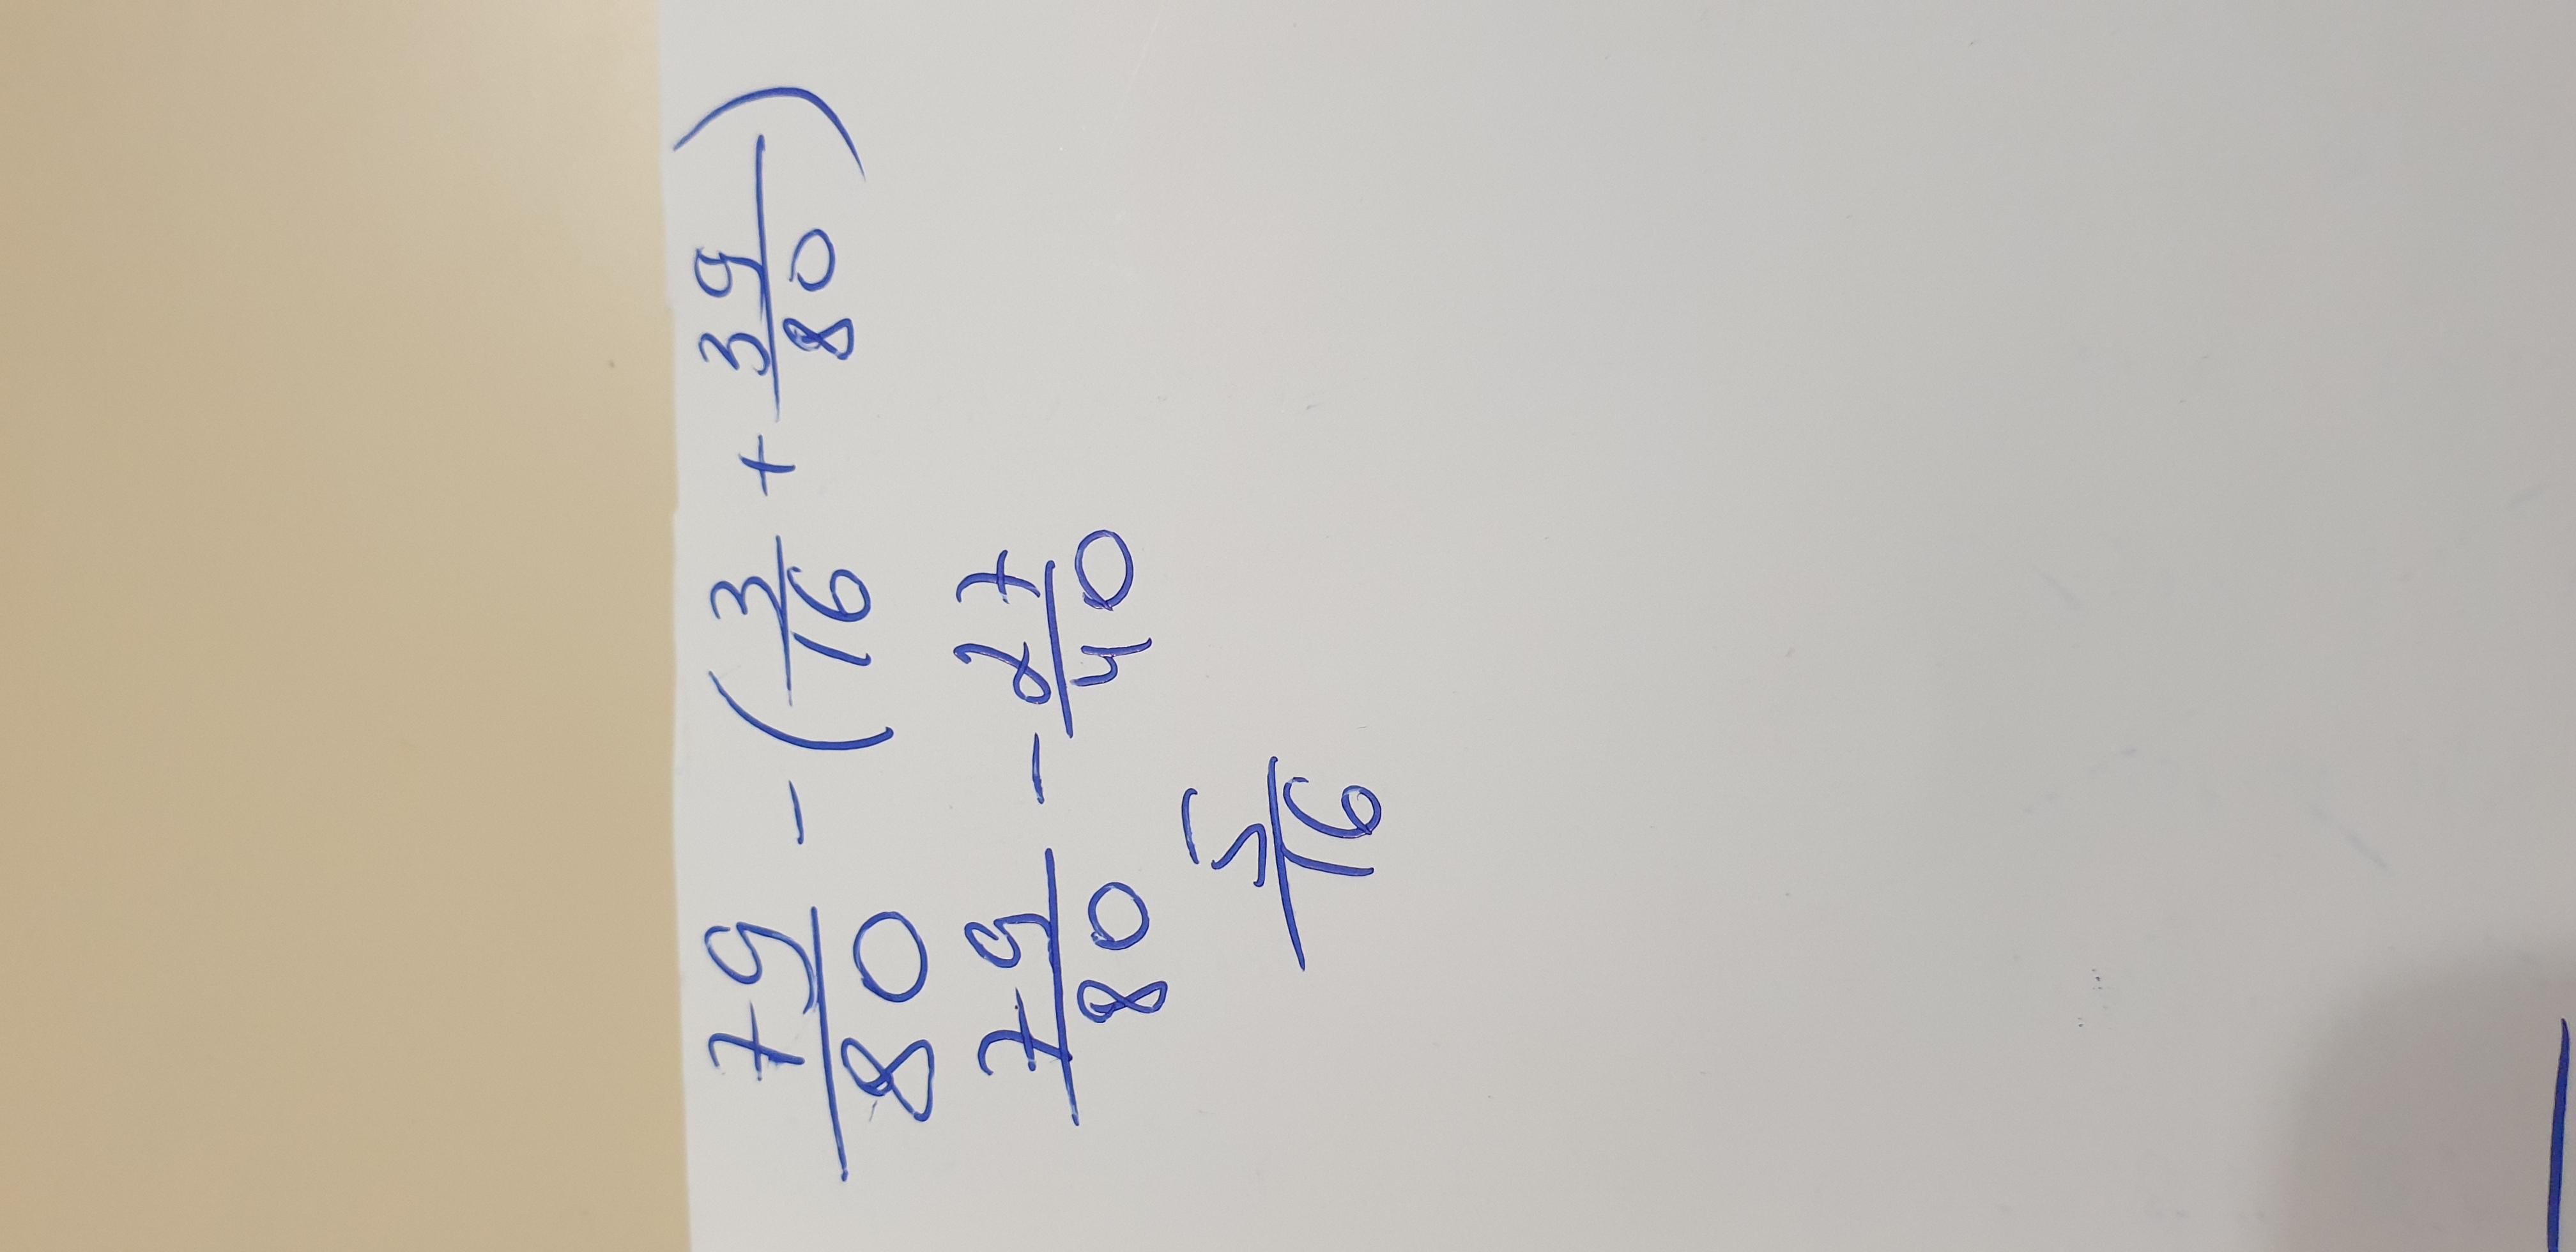 79/80 - (3/16 + 39/80)
79/80 - 27/40
5/16